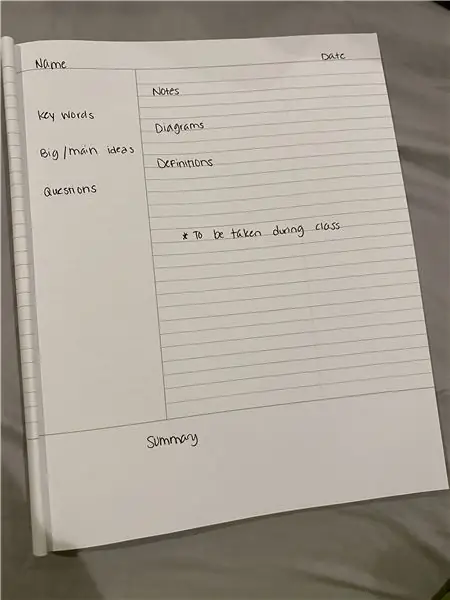 Name
Date
Key words
Big/main ideas
Questions
Notes
Diagrams
Definitions
* To be taken during class
Summary